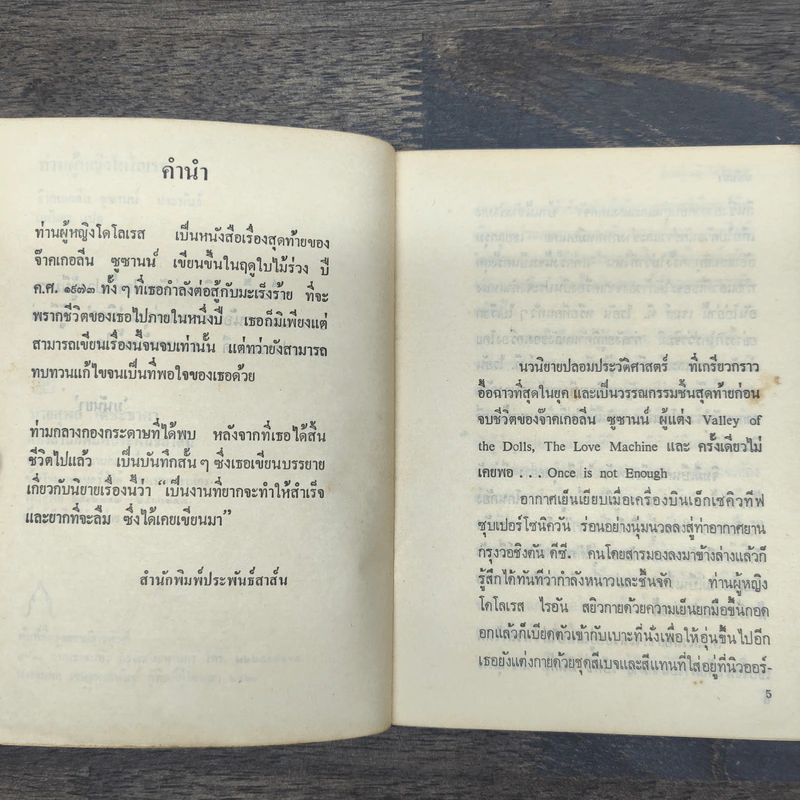 คำนำ
ท่านผู้หญิงโดโลเรส เป็นหนังสือเรื่องสุดท้ายของ
จ๊าคเกอลีน ซูซานน์ เขียนขึ้นในฤดูใบไม้ร่วง ปี
ค.ศ. ๑๙๗๓ ทั้ง ๆ ที่เธอกำลังต่อสู้กับมะเร็งร้าย ที่จะ
พรากชีวิตของเธอไปภายในหนึ่งปี เธอก็มิเพียงแต่
สามารถเขียนเรื่องนี้จนจบเท่านั้น แต่ทว่ายังสามารถ
ทบทวนแก้ไขจนเป็นที่พอใจของเธอด้วย
ท่ามกลางกองกระดาษที่ได้พบ หลังจากที่เธอได้สิ้น
ชีวิตไปแล้ว เป็นบันทึกสั้น ๆ ซึ่งเธอเขียนบรรยาย
เกี่ยวกับนิยายเรื่องนี้ว่า “เป็นงานที่ยากจะทำให้สำเร็จ
และยากที่จะลืม ซึ่งได้เคยเขียนมา”
สำนักพิมพ์ประพันธ์สาส์น
นวนิยายปลอมประวัติศาสตร์ ที่เกรียวกราว
อื้อฉาวที่สุดในยุค และเป็นวรรณกรรมชิ้นสุดท้ายก่อน
จบชีวิตของจ๊าคเกอลีน ซูซานน์ ผู้แต่ง Valley of
the Dolls, The Love Machine และ ครั้งเดียวไม่
เคยพอ . . . Once is not Enough
อากาศเย็นเยียบเมื่อเครื่องบินเอ็กเซคิวทีฟ
ซุบเปอร์โซนิควัน ร่อนอย่างนุ่มนวลลงสู่ท่าอากาศยาน
กรุงวอชิงตัน ดีซี. คนโดยสารมองลงมาข้างล่างแล้วก็
รู้สึกได้ทันทีว่ากำลังหนาวและชื้นจัด ท่านผู้หญิง
โดโลเรส ไรอัน สยิวกายด้วยความเย็นยกมือขึ้นกอด
อกแล้วก็เบียดตัวเข้ากับเบาะที่นั่งเพื่อให้อุ่นขึ้นไปอีก
เธอยังแต่งกายด้วยชุดสีเบจและสีแทนที่ใส่อยู่ที่นิวออร์-
5